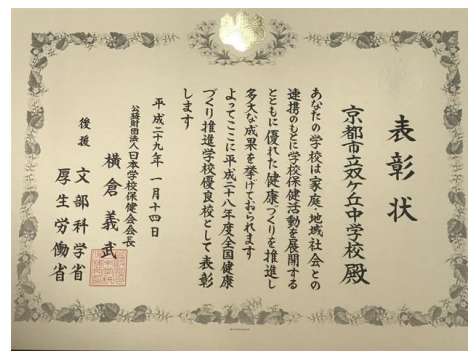 表彰状
京都市立双ケ丘中学校 殿
あなたの学校は家庭・地域社会との
連携のもとに学校保健活動を展開する
とともに優れた健康づくりを推進し
多大な成果を挙げておられます
よってここに平成二十八年度全国健康
づくり推進学校優良校として表彰
します
平成二十九年一月十四日
公益財団法人日本学校保健会会長
横倉義武
後援 文部科学省
厚生労働省